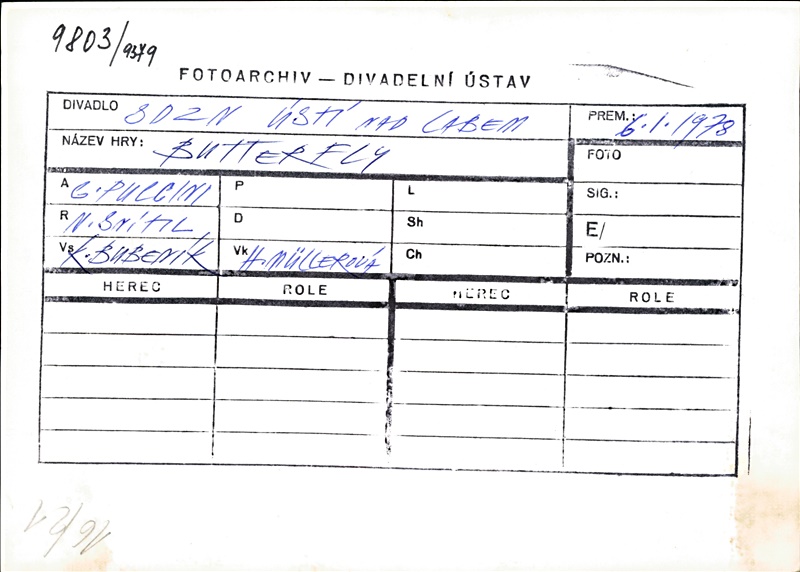 9803/9379
FOTOARCHIV — DIVADELNÍ ÚSTAV
DIVADLO SDZN ÚSTÍ NAD LABEM PREM.: 6.1.1978
NÁZEV HRY: BUTTERFLY FOTO
A G. PUCCINI P L SIG.:
R N. SNÍTIL D Sh E/
Vs K. BUBENÍK Vk H. MÜLLEROVÁ Ch POZN.:
HEREC ROLE HEREC ROLE